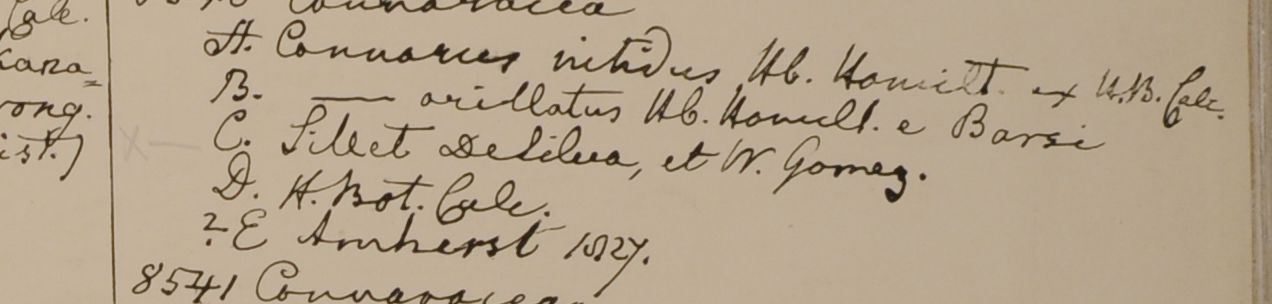 Calc.
8540 Connaracea
A. Connarus nitidus Hb. Hamilt. ex H.B. Calc.
B. —— arillatus Hb. Hamill. e Barsi
C. Sillet DeSilva, et W. Gomez.
D. H. Bot. Calc.
? E Amherst 1827.
8541 Connaracea